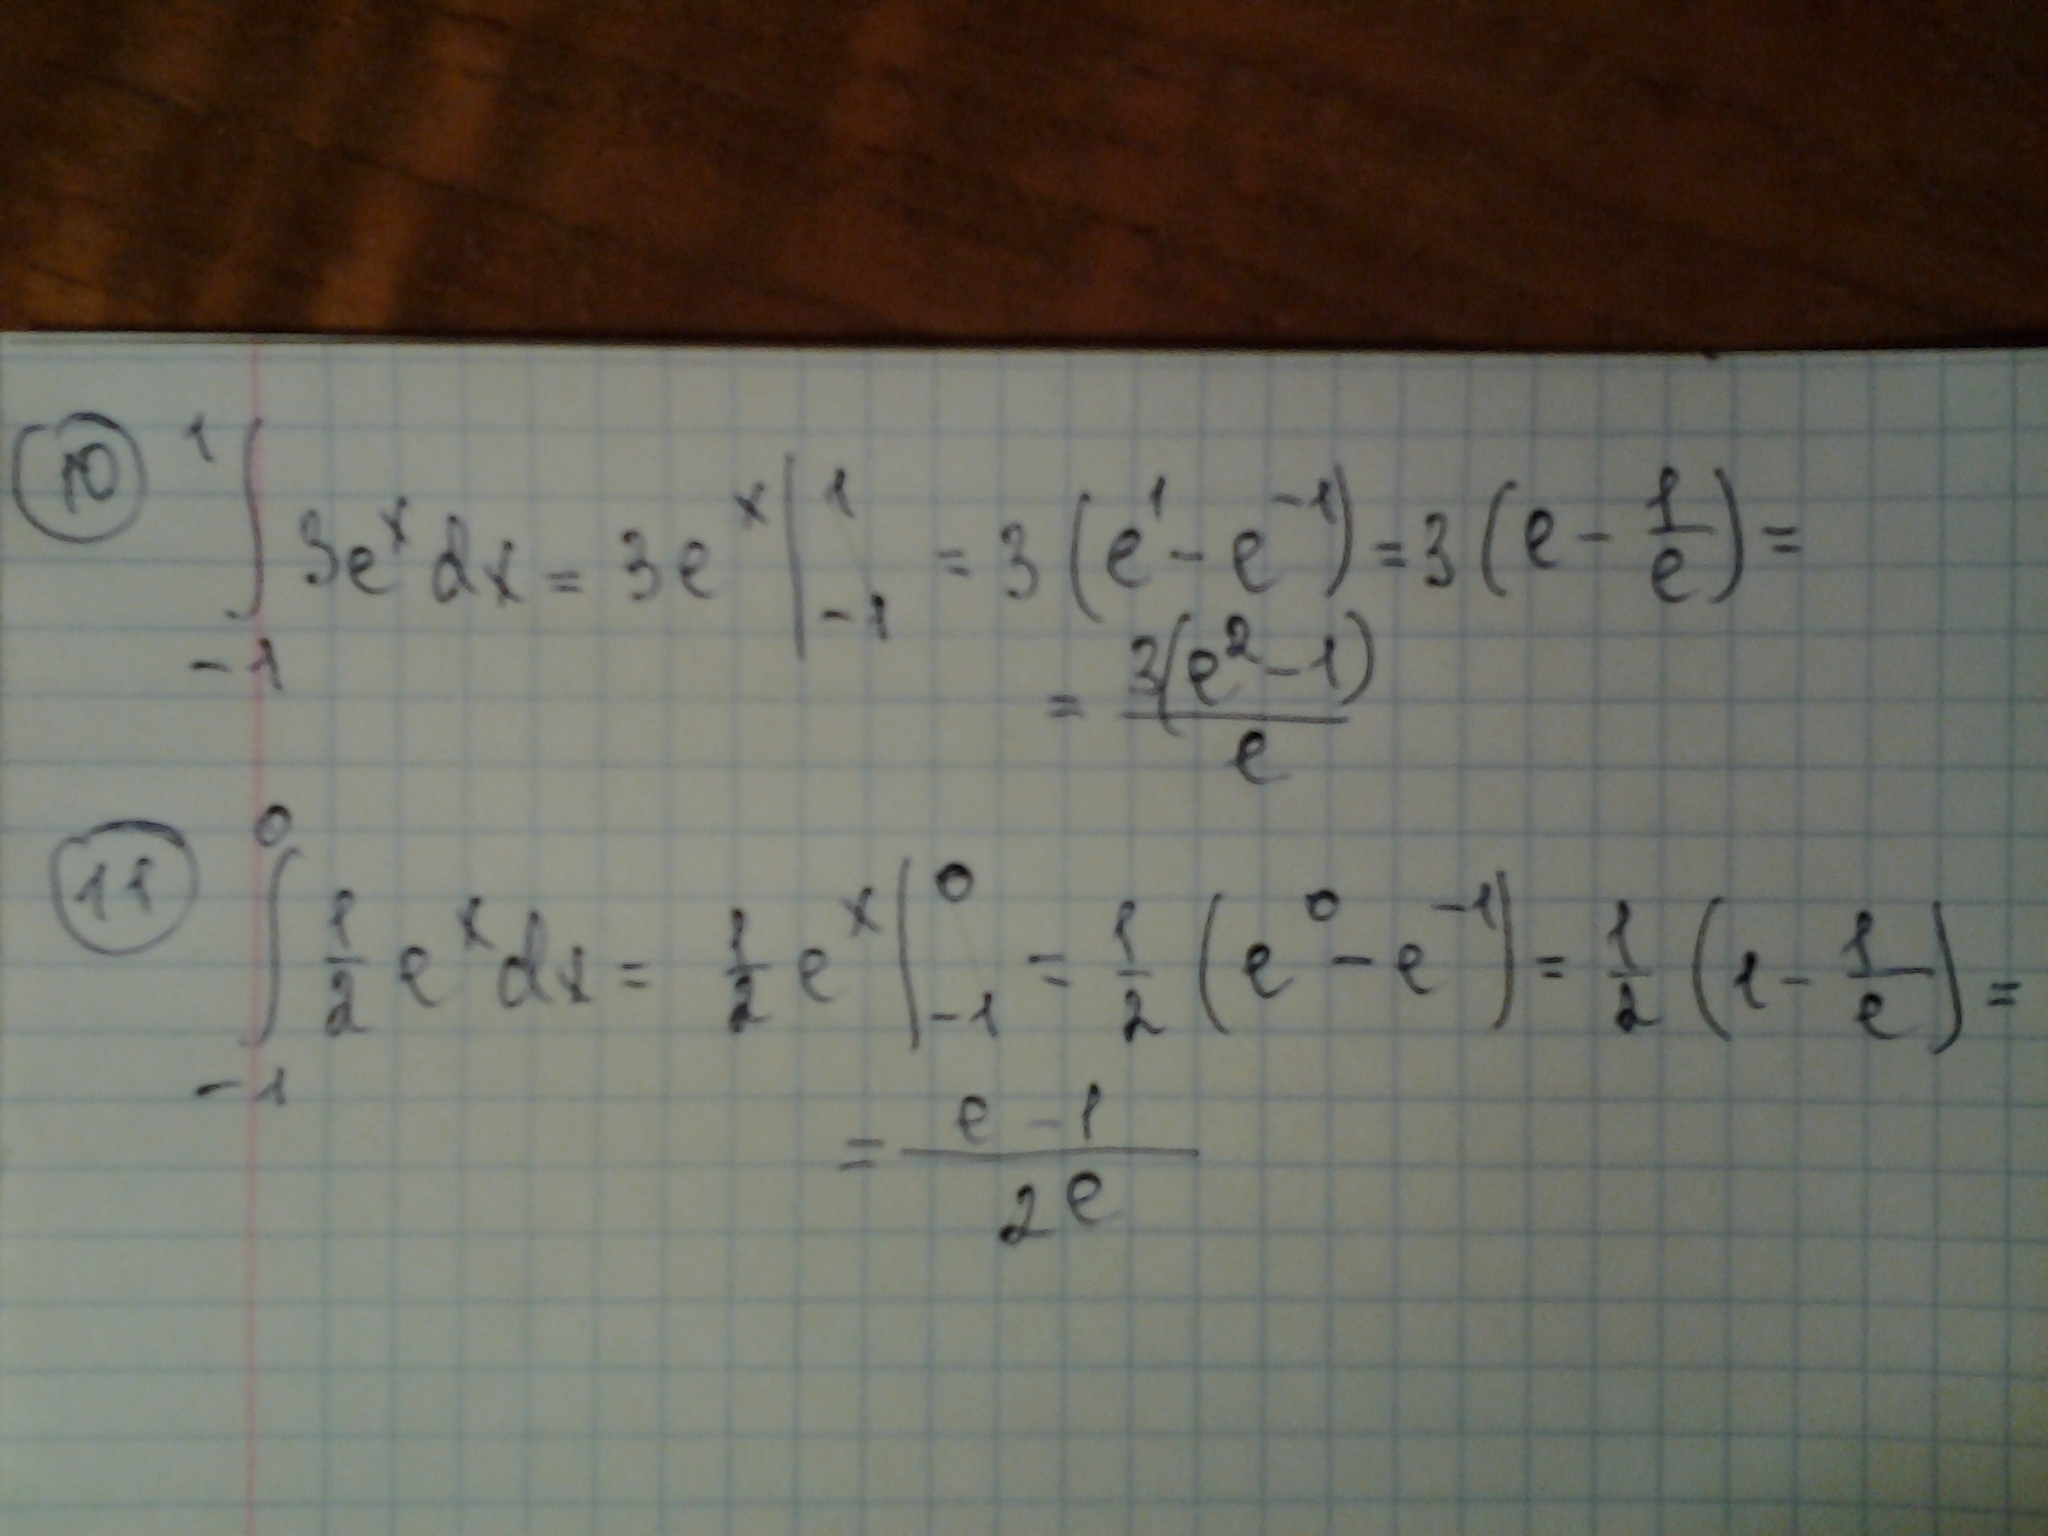 10) ∫₋₁¹ 3eˣ dx = 3eˣ |₋₁¹ = 3(e¹ - e⁻¹) = 3(e - 1/e) =
= 3(e² - 1)/e
11) ∫₋₁⁰ 1/2 eˣ dx = 1/2 eˣ |₋₁⁰ = 1/2 (e⁰ - e⁻¹) = 1/2 (1 - 1/e) =
= (e - 1)/2e